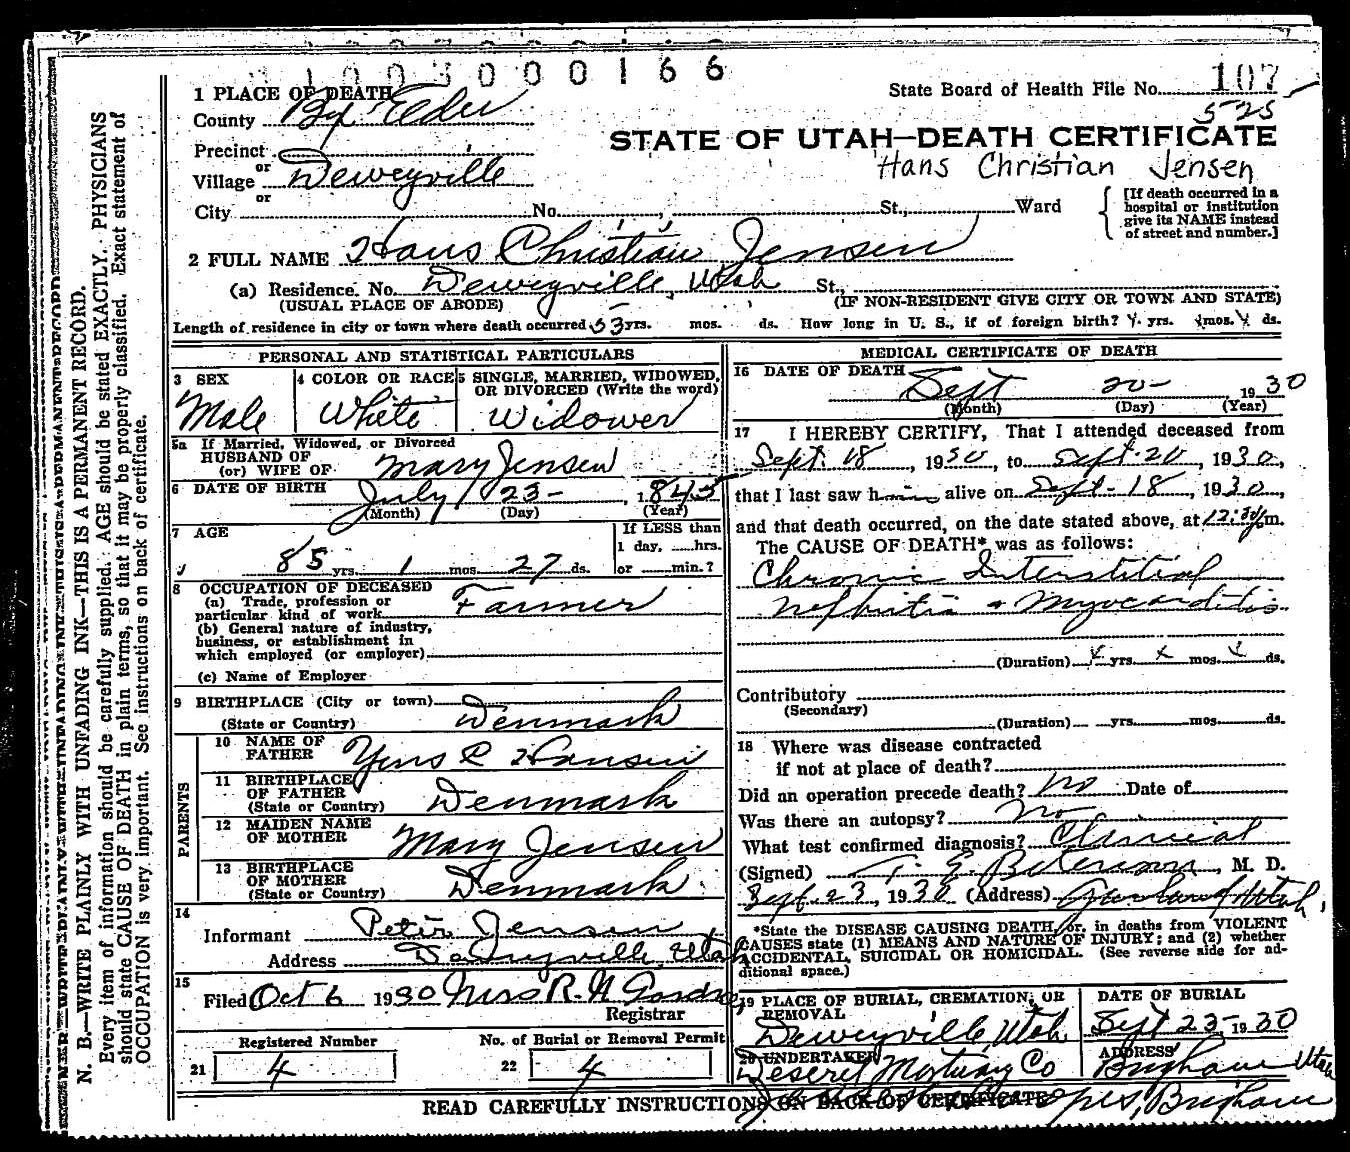 1003000166
1 PLACE OF DEATH
State Board of Health File No. 107
County Box Elder
525
STATE OF UTAH—DEATH CERTIFICATE
Precinct
Hans Christian Jensen
or
Village Deweyville
or
City No. , St., Ward
[If death occurred in a
hospital or institution
give its NAME instead
of street and number.]
2 FULL NAME Hans Christian Jensen
(a) Residence. No. Deweyville, Utah St.,
(USUAL PLACE OF ABODE) (IF NON-RESIDENT GIVE CITY OR TOWN AND STATE)
Length of residence in city or town where death occurred 53 yrs. mos. ds. How long in U. S., if of foreign birth? yrs. mos. ds.
PERSONAL AND STATISTICAL PARTICULARS
3 SEX
Male
4 COLOR OR RACE
White
5 SINGLE, MARRIED, WIDOWED,
OR DIVORCED (Write the word)
Widower
5a If Married, Widowed, or Divorced
HUSBAND OF
(or) WIFE OF Mary Jensen
6 DATE OF BIRTH July 23- , 1845
(Month) (Day) (Year)
7 AGE
85 yrs. 1 mos. 27 ds.
If LESS than
1 day, ......hrs.
or ......min.?
8 OCCUPATION OF DECEASED
(a) Trade, profession or
particular kind of work Farmer
(b) General nature of industry,
business, or establishment in
which employed (or employer)
(c) Name of Employer
9 BIRTHPLACE (City or town)
(State or Country) Denmark
PARENTS
10 NAME OF
FATHER Yens C Hansen
11 BIRTHPLACE
OF FATHER
(State or Country) Denmark
12 MAIDEN NAME
OF MOTHER Mary Jensen
13 BIRTHPLACE
OF MOTHER
(State or Country) Denmark
14
Informant Peter Jensen
Address Deweyville, Utah
15
Filed Oct 6 1930 Mrs R. N. Gardner
Registrar
Registered Number
21 4
No. of Burial or Removal Permit
22 4
MEDICAL CERTIFICATE OF DEATH
16 DATE OF DEATH
Sept 20- 1930
(Month) (Day) (Year)
17 I HEREBY CERTIFY, That I attended deceased from
Sept. 18, 1930, to Sept. 20, 1930,
that I last saw him alive on Sept - 18, 1930,
and that death occurred, on the date stated above, at 12:30 p.m.
The CAUSE OF DEATH* was as follows:
Chronic Interstitial
Nefhritis & Myocarditis
(Duration) yrs. mos. ds.
Contributory
(Secondary)
(Duration) yrs. mos. ds.
18 Where was disease contracted
if not at place of death?
Did an operation precede death? No Date of
Was there an autopsy? No
What test confirmed diagnosis? Clinical
(Signed) , M. D.
Sept. 23, 1930 (Address) Garland Utah.
*State the DISEASE CAUSING DEATH, or, in deaths from VIOLENT
CAUSES state (1) MEANS AND NATURE OF INJURY; and (2) whether
ACCIDENTAL, SUICIDAL OR HOMICIDAL. (See reverse side for ad-
ditional space.)
19 PLACE OF BURIAL, CREMATION, OR
REMOVAL
Deweyville, Utah
DATE OF BURIAL
Sept 23- 1930
20 UNDERTAKER
Deseret Mortuary Co
ADDRESS
Brigham Utah
Brigham
READ CAREFULLY INSTRUCTIONS ON BACK OF CERTIFICATE
N. B.—WRITE PLAINLY WITH UNFADING INK—THIS IS A PERMANENT RECORD.
Every item of information should be carefully supplied. AGE should be stated EXACTLY. PHYSICIANS
should state CAUSE OF DEATH in plain terms, so that it may be properly classified. Exact statement of
OCCUPATION is very important. See instructions on back of certificate.